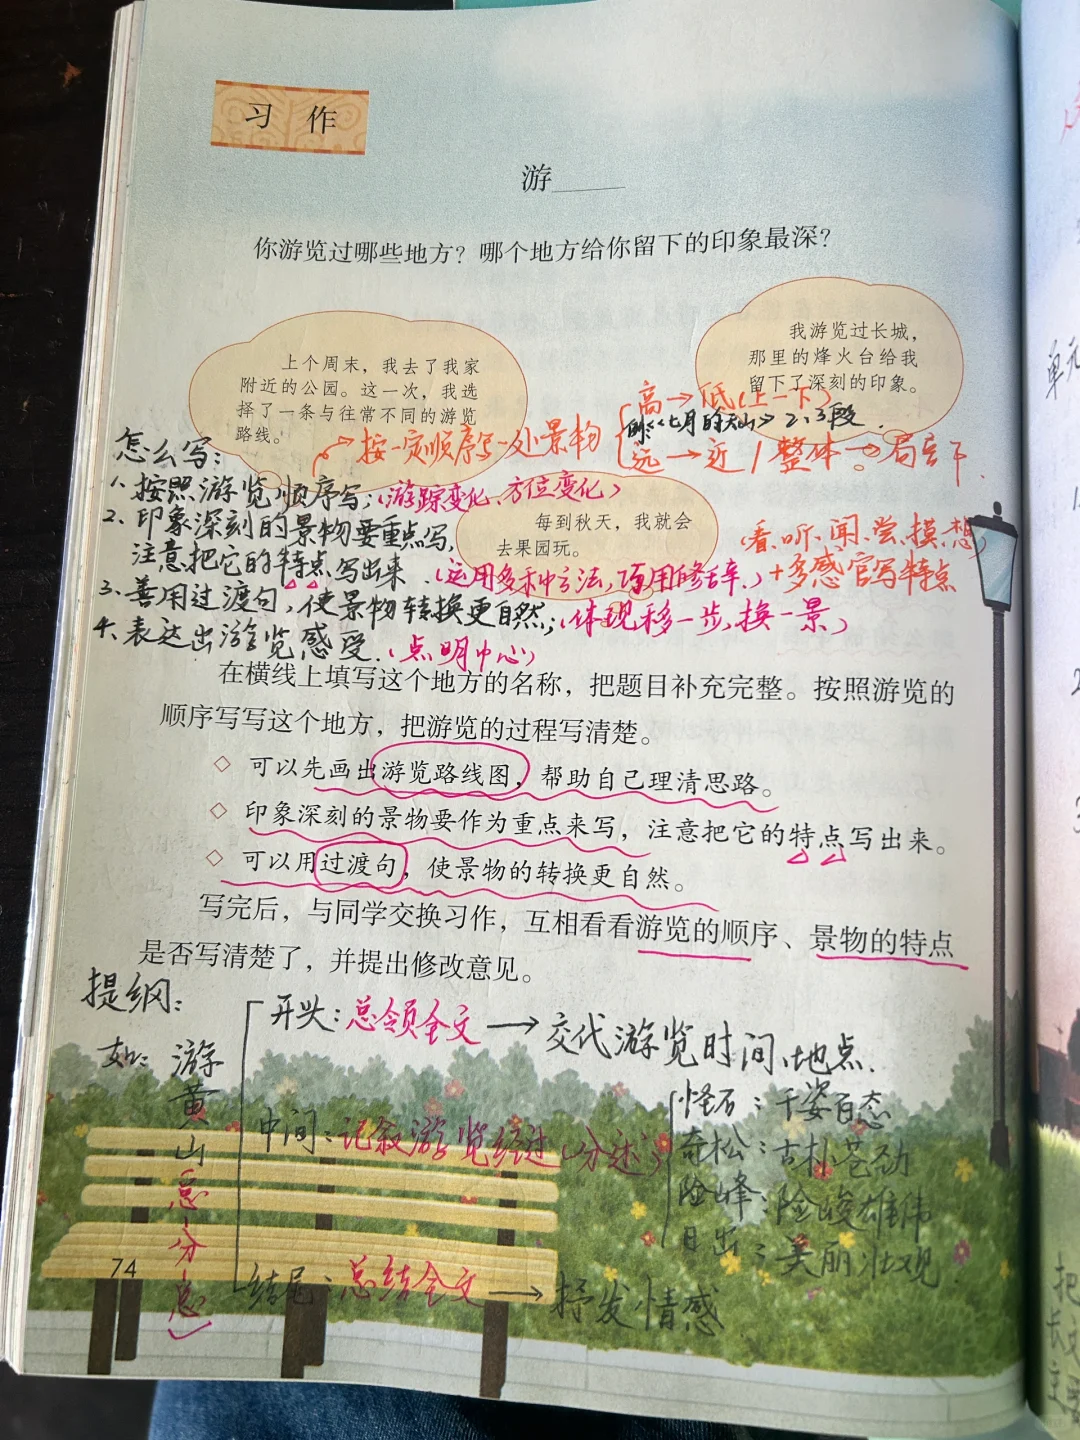 习作
游____
你游览过哪些地方？哪个地方给你留下的印象最深？
上个周末，我去了我家
附近的公园。这一次，我选
择了一条与往常不同的游览
路线。
我游览过长城，
那里的烽火台给我
留下了深刻的印象。
高→低(上—下)
《七月的天山》2、3段
远→近/整体→局部
按一定顺序写一处景物
怎么写:
1、按照游览顺序写;(游踪变化、方位变化)
每到秋天，我就会
去果园玩。
2、印象深刻的景物要重点写,
注意把它的特点写出来.(运用多种方法,巧用修辞.)
(看、听、闻、尝、摸、想
+多感官写特点
3、善用过渡句,使景物转换更自然;(体现移一步,换一景)
4、表达出游览感受.(点明中心)
在横线上填写这个地方的名称，把题目补充完整。按照游览的
顺序写写这个地方，把游览的过程写清楚。
◇ 可以先画出游览路线图，帮助自己理清思路。
◇ 印象深刻的景物要作为重点来写，注意把它的特点写出来。
◇ 可以用过渡句，使景物的转换更自然。
写完后，与同学交换习作，互相看看游览的顺序、景物的特点
是否写清楚了，并提出修改意见。
提纲:
如: 游黄山(总分总)
开头:总领全文→交代游览时间、地点.
中间:记叙游览经过(分述)
怪石:千姿百态
奇松:古朴苍劲
险峰:险峻雄伟
日出:美丽壮观
结尾:总结全文→抒发情感
74
单元
把
长文
主